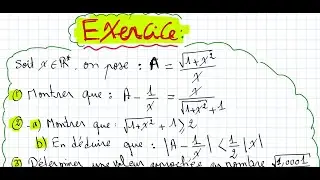 Exercice:
Soit x ∈ ℝ* on pose : A = √(1+x²) / x
① Montrer que : A - 1/x = x / (√(1+x²) + 1)
② - a) Montrer que : √(1+x²) + 1 > 2
b) En déduire que : |A - 1/x| < 1/2 |x|
③ Déterminer une valeur approchée du nombre √1,0001